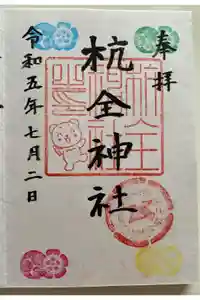 奉拝
杭全神社
令和五年七月二日